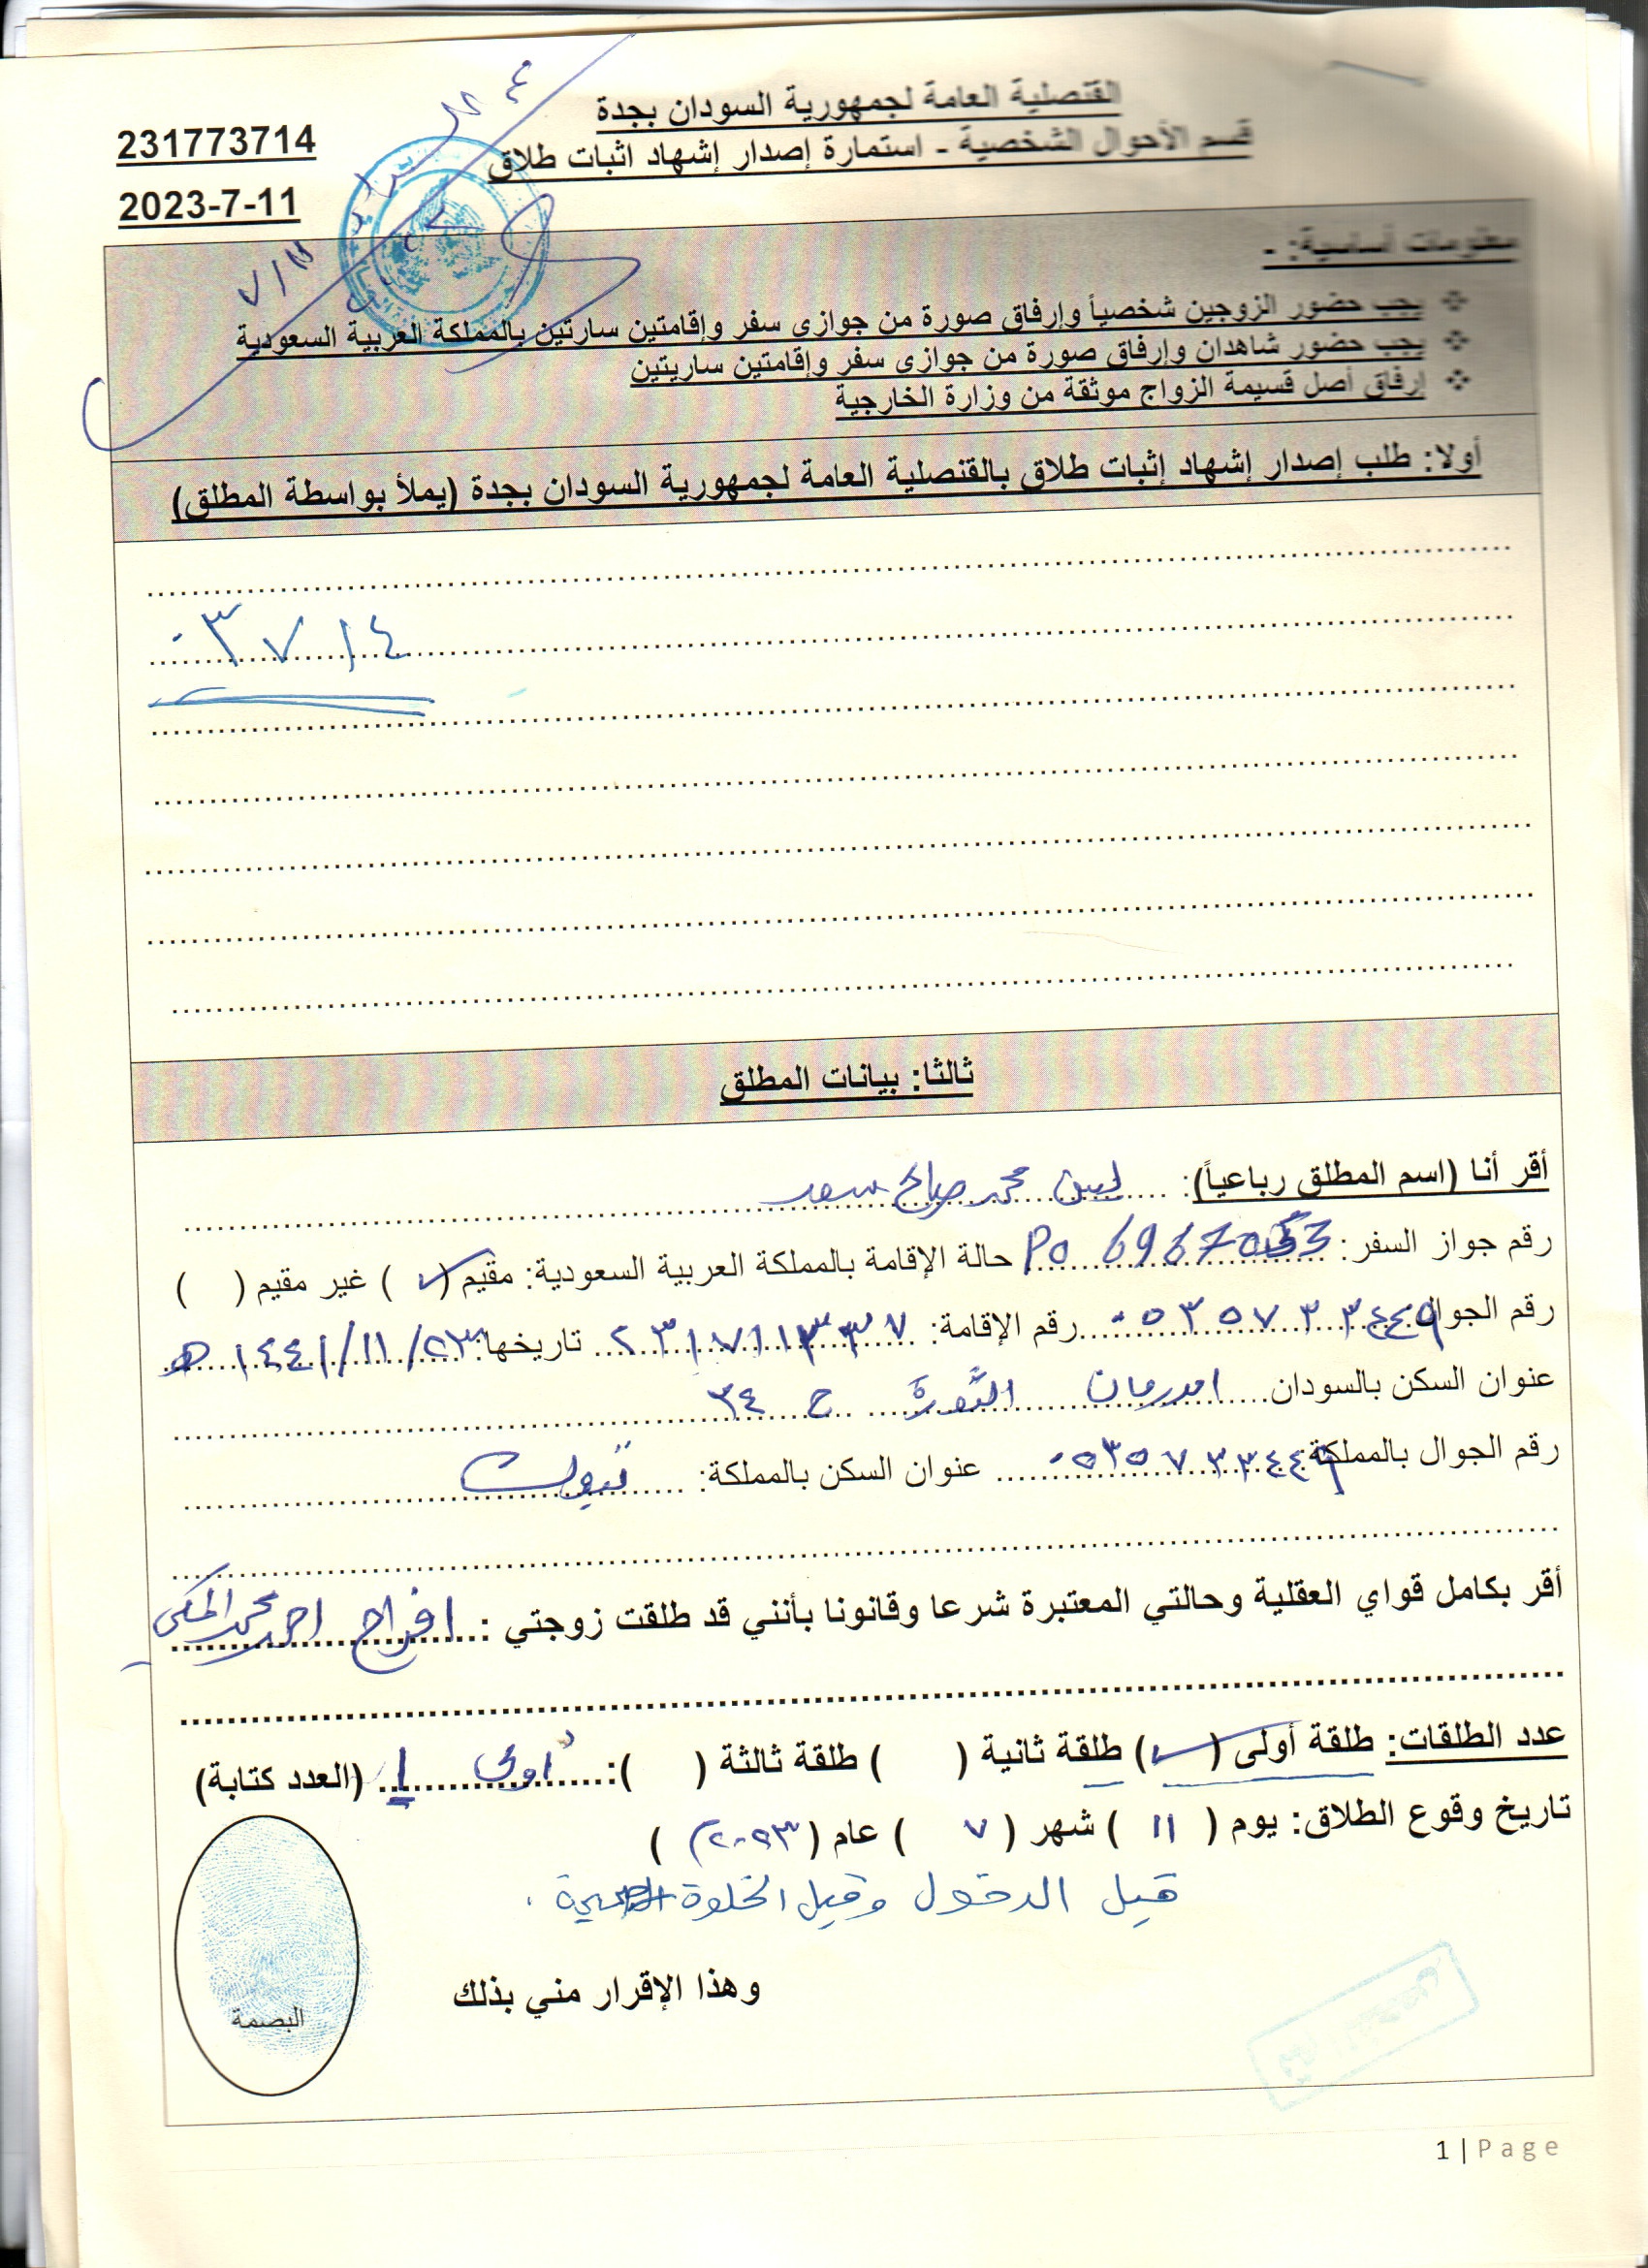 القنصلية العامة لجمهورية السودان بجدة
231773714
قسم الأحوال الشخصية - استمارة إصدار إشهاد اثبات طلاق
2023-7-11
معلومات أساسية: -
يجب حضور الزوجين شخصياً وإرفاق صورة من جوازى سفر وإقامتين سارتين بالمملكة العربية السعودية
يجب حضور شاهدان وإرفاق صورة من جوازى سفر وإقامتين ساريتين
إرفاق أصل قسيمة الزواج موثقة من وزارة الخارجية
أولا: طلب إصدار إشهاد إثبات طلاق بالقنصلية العامة لجمهورية السودان بجدة (يملأ بواسطة المطلق)
٠٣٧١٤
ثالثا: بيانات المطلق
أقر أنا (اسم المطلق رباعياً): محمد صالح سعد
رقم جواز السفر: حالة الإقامة بالمملكة العربية السعودية: مقيم (✓) غير مقيم ( )
رقم الجوال ٠٥٣٥٧٣٣٤٤٩ رقم الإقامة: تاريخها: ١٤٤١/١١/٢٣ هـ
عنوان السكن بالسودان امدرمان الثورة ح ٣٤
رقم الجوال بالمملكة ٠٥٣٥٧٣٣٤٤٩ عنوان السكن بالمملكة: تبوك
أقر بكامل قواي العقلية وحالتي المعتبرة شرعا وقانونا بأنني قد طلقت زوجتي : افراح احمد محمد المكي
عدد الطلقات: طلقة أولى (✓) طلقة ثانية ( ) طلقة ثالثة ( ): اولى (العدد كتابة)
تاريخ وقوع الطلاق: يوم ( ١١ ) شهر ( ٧ ) عام ( ٢٠٢٣ )
قبل الدخول وقبل الخلوة الصحيحة .
وهذا الإقرار مني بذلك
البصمة
1 | Page